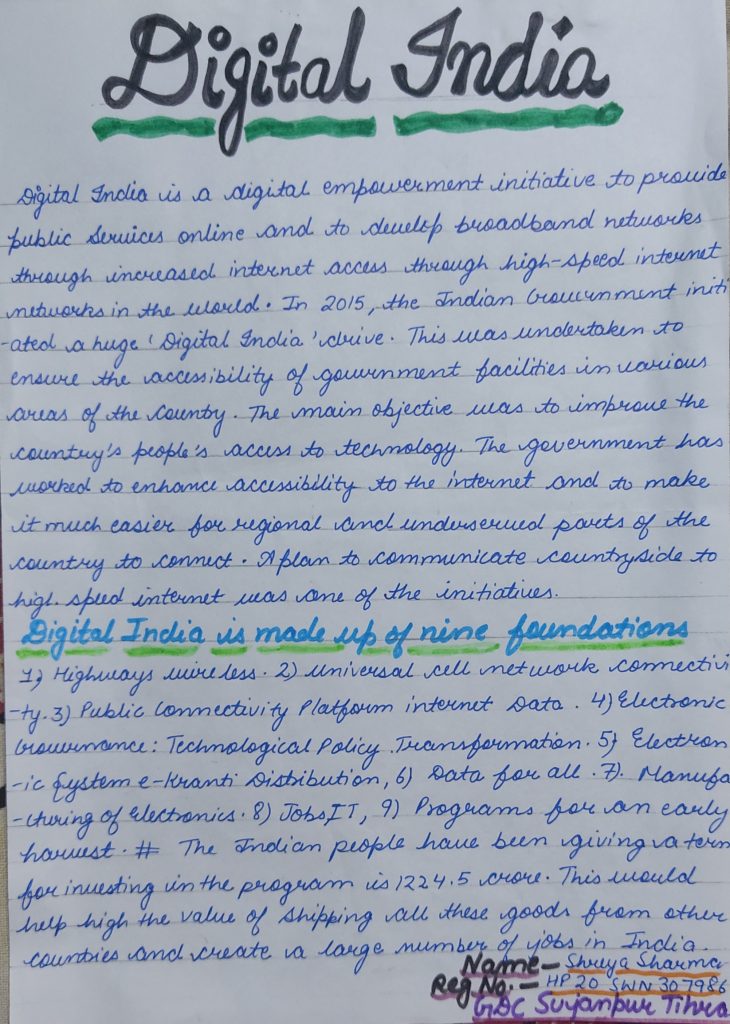 Digital India
Digital India is a digital empowerment initiative to provide
public Services online and to develop broadband networks
through increased internet access through high-speed internet
networks in the world. In 2015, the Indian Government initi
-ated a huge 'Digital India' drive. This was undertaken to
ensure the accessibility of government facilities in various
areas of the County. The main objective was to improve the
country's people's access to technology. The government has
worked to enhance accessibility to the internet and to make
it much easier for regional and underserved parts of the
country to connect. A plan to communicate countryside to
high speed internet was one of the initiatives.
Digital India is made up of nine foundations
1) Highways wireless. 2) Universal cell network connectivi
-ty. 3) Public Connectivity Platform internet Data. 4) Electronic
Governance: Technological Policy Transformation. 5) Electron
-ic System e-Kranti Distribution, 6) Data for all. 7). Manufa
-cturing of Electronics. 8) Jobs IT, 9) Programs for an early
harvest. # The Indian people have been giving a term
for investing in the program is 1224.5 crore. This would
help high the value of shipping all these goods from other
counties and create a large number of jobs in India.
Name - Shreya Sharma
Reg No. - HP 20 SWN 307986
GDC Sujanpur Tihra